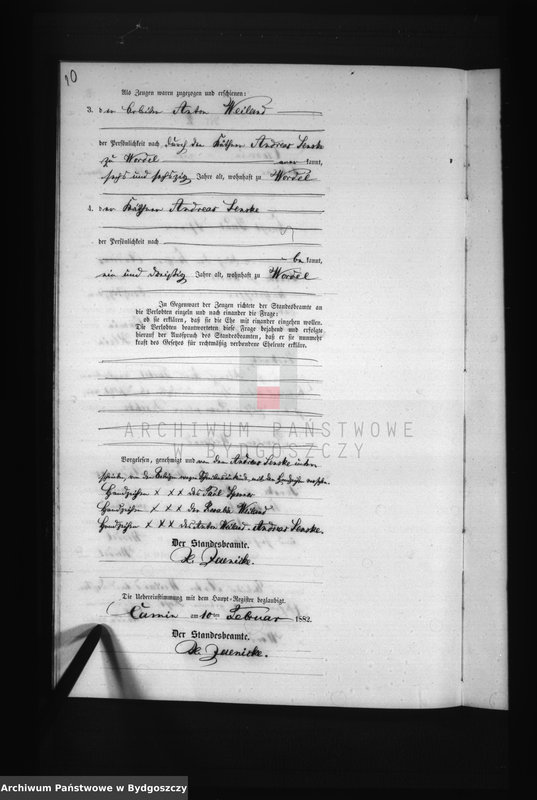 10
Als Zeugen waren zugezogen und erschienen:
3. der Arbeiter Anton Weiland
der Persönlichkeit nach durch den Käthner Andreas Lenske
zu Wordel kannt,
sechs und sechszig Jahre alt, wohnhaft zu Wordel
4. der Käthner Andreas Lenske
der Persönlichkeit nach
be kannt,
ein und dreißig Jahre alt, wohnhaft zu Wordel
In Gegenwart der Zeugen richtete der Standesbeamte an
die Verlobten einzeln und nach einander die Frage:
ob sie erklären, daß sie die Ehe mit einander eingehen wollen.
Die Verlobten beantworteten diese Frage bejahend und erfolgte
hierauf der Ausspruch des Standesbeamten, daß er sie nunmehr
kraft des Gesetzes für rechtmäßig verbundene Eheleute erkläre.
ARCHIWUM PAŃSTWOWE
W BYDGOSZCZY
Vorgelesen, genehmigt und von dem Andreas Lenske unter
schrieben, von den wegen mit den Handzeichen versehen.
Handzeichen x x x des Paul
Handzeichen x x x der Rosalie Weiland
Handzeichen x x x des Anton Weiland. Andreas Lenske.
Der Standesbeamte.
Jaenicke.
Die Uebereinstimmung mit dem Haupt-Register beglaubigt.
Camin am 10ten Februar 1882.
Der Standesbeamte.
Jaenicke.
Archiwum Państwowe w Bydgoszczy